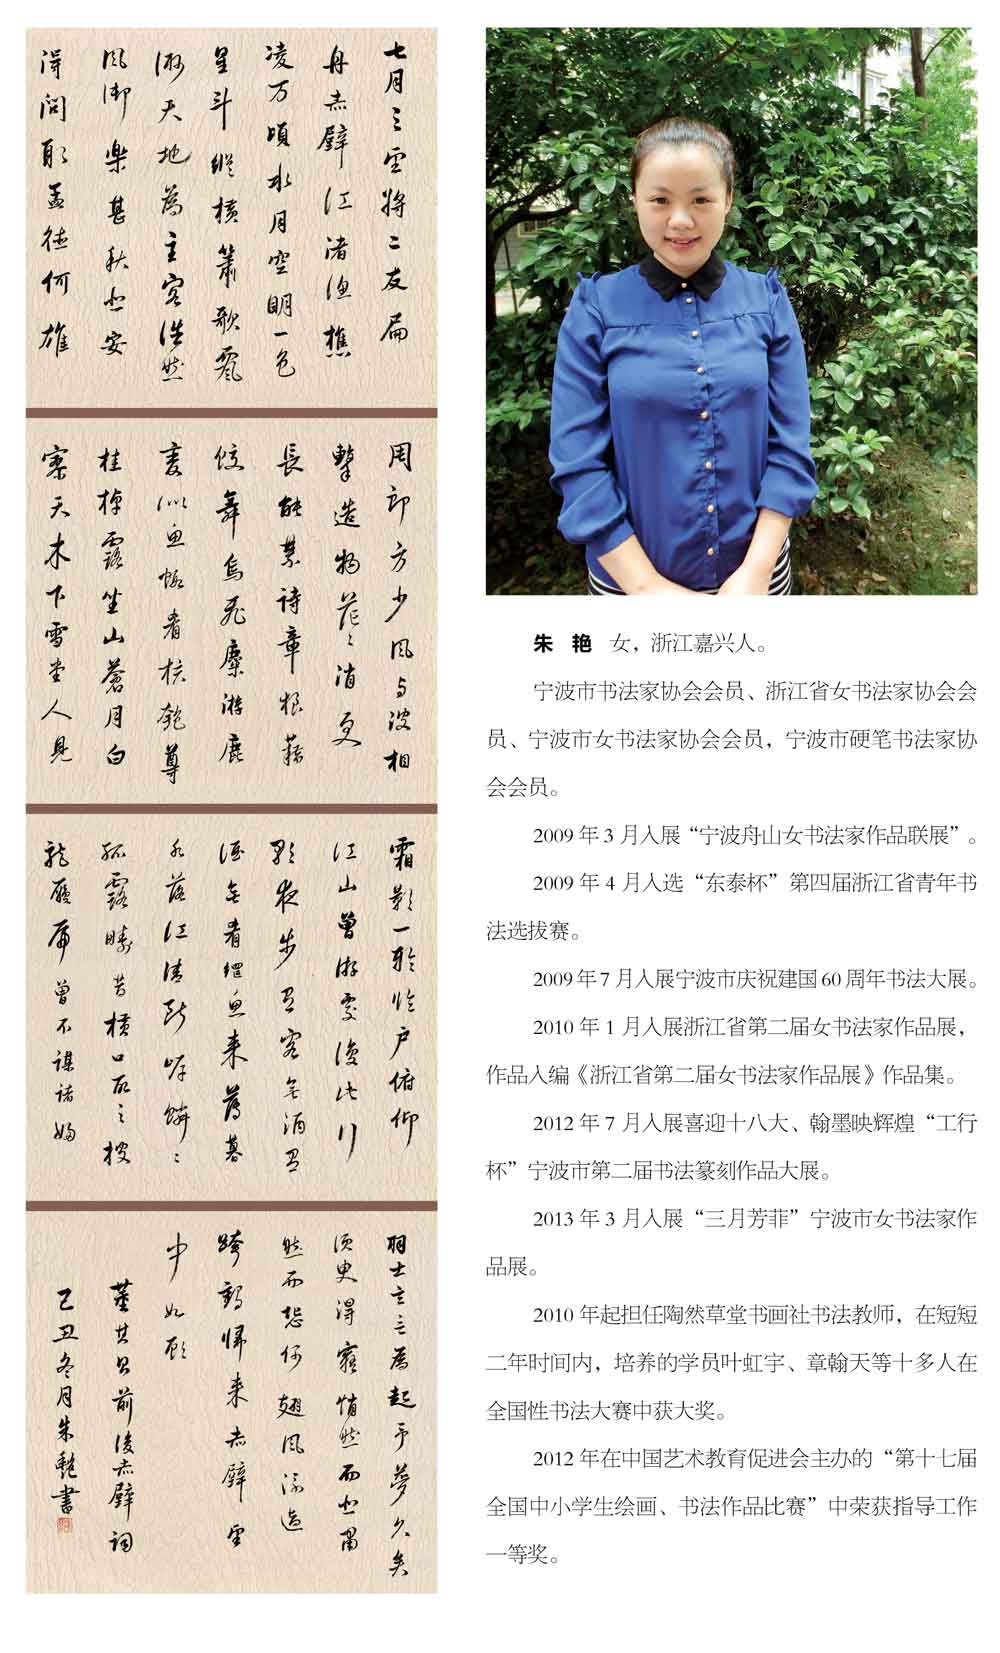 七月之望將二友扁
舟赤壁江渚渔樵
凌万頃水月空明一色
星斗縱橫簫歌飄
渺天地為主客浩然
風御樂甚秋安
得问取孟德何雄
周郎方少風与波相
擊造物茫〻消更
長能禁詩章狼藉
蛟舞烏飛麋游鹿
似魚蝦肴核匏尊
桂棹露坐山蒼月白
寥天木下雪堂人見
霜影一臨户俯仰
江山曾游處復此行
歌夜步有客無酒有
酒無肴網魚来薄暮
水落江清断岸鱗〻
孤露畴昔横
曾不謀诸婦
羽士言之為起予夢久矣
须臾得寤悄然而
然而恐何翅風流過
跨鶴歸来赤壁望
中如
董其昌前後赤壁詞
己丑冬月朱艷書
朱 艳 女，浙江嘉兴人。
宁波市书法家协会会员、浙江省女书法家协会会
员、宁波市女书法家协会会员，宁波市硬笔书法家协
会会员。
2009 年 3 月入展“宁波舟山女书法家作品联展”。
2009 年 4 月入选“东泰杯”第四届浙江省青年书
法选拔赛。
2009 年 7 月入展宁波市庆祝建国 60 周年书法大展。
2010 年 1 月入展浙江省第二届女书法家作品展，
作品入编《浙江省第二届女书法家作品展》作品集。
2012 年 7 月入展喜迎十八大、翰墨映辉煌“工行
杯”宁波市第二届书法篆刻作品大展。
2013 年 3 月入展“三月芳菲”宁波市女书法家作
品展。
2010 年起担任陶然草堂书画社书法教师，在短短
二年时间内，培养的学员叶虹宇、章翰天等十多人在
全国性书法大赛中获大奖。
2012 年在中国艺术教育促进会主办的“第十七届
全国中小学生绘画、书法作品比赛”中荣获指导工作
一等奖。